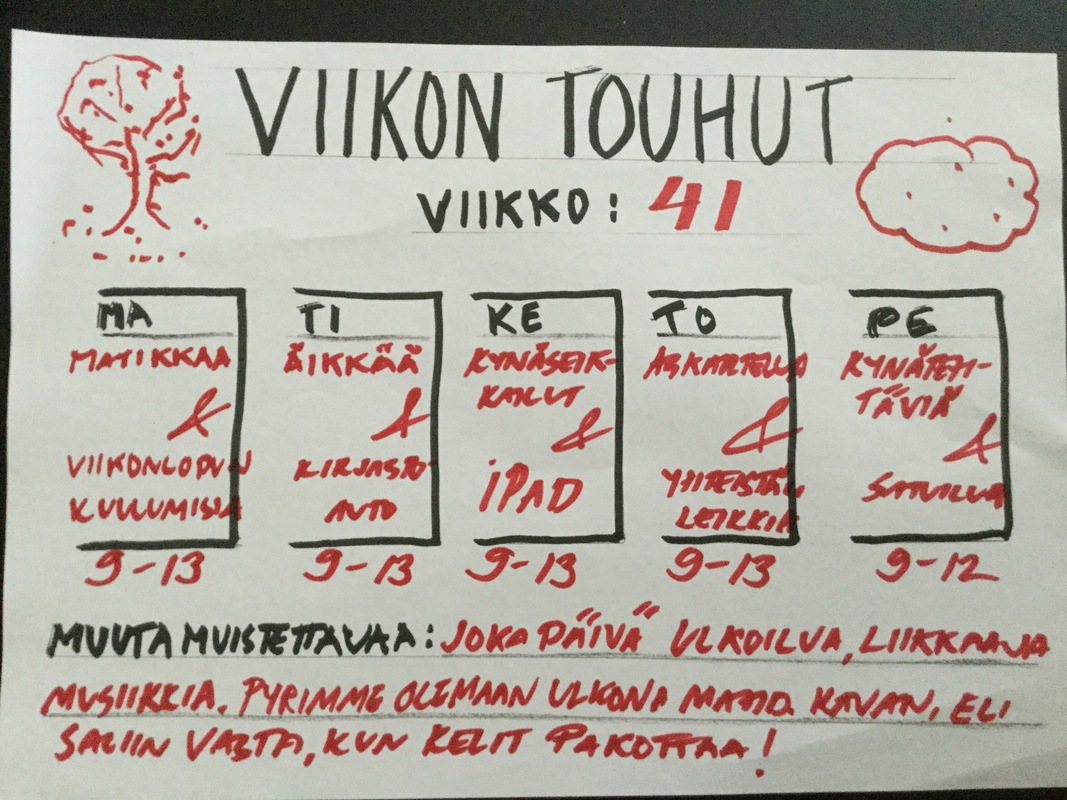 VIIKON TOUHUT
VIIKKO: 41
MA
MATIKKAA
&
VIIKONLOPUN
KULUMISIA
9-13
TI
ÄIKKÄÄ
&
KIRJASTO-
AUTO
9-13
KE
KYNÄSEIK-
KAILUT
&
iPAD
9-13
TO
ASKARTELUA
&
YHTEISTÄ
LEIKKIÄ
9-13
PE
KYNÄTEH-
TÄVIÄ
&
SATUILUA
9-12
MUUTA MUISTETTAVAA: JOKA PÄIVÄ ULKOILUA, LIIKKAA JA
MUSIIKKIA. PYRIMME OLEMAAN ULKONA MAHD. KAUAN, ELI
SALIIN VASTA, KUN KELIT PAKOTTAA!